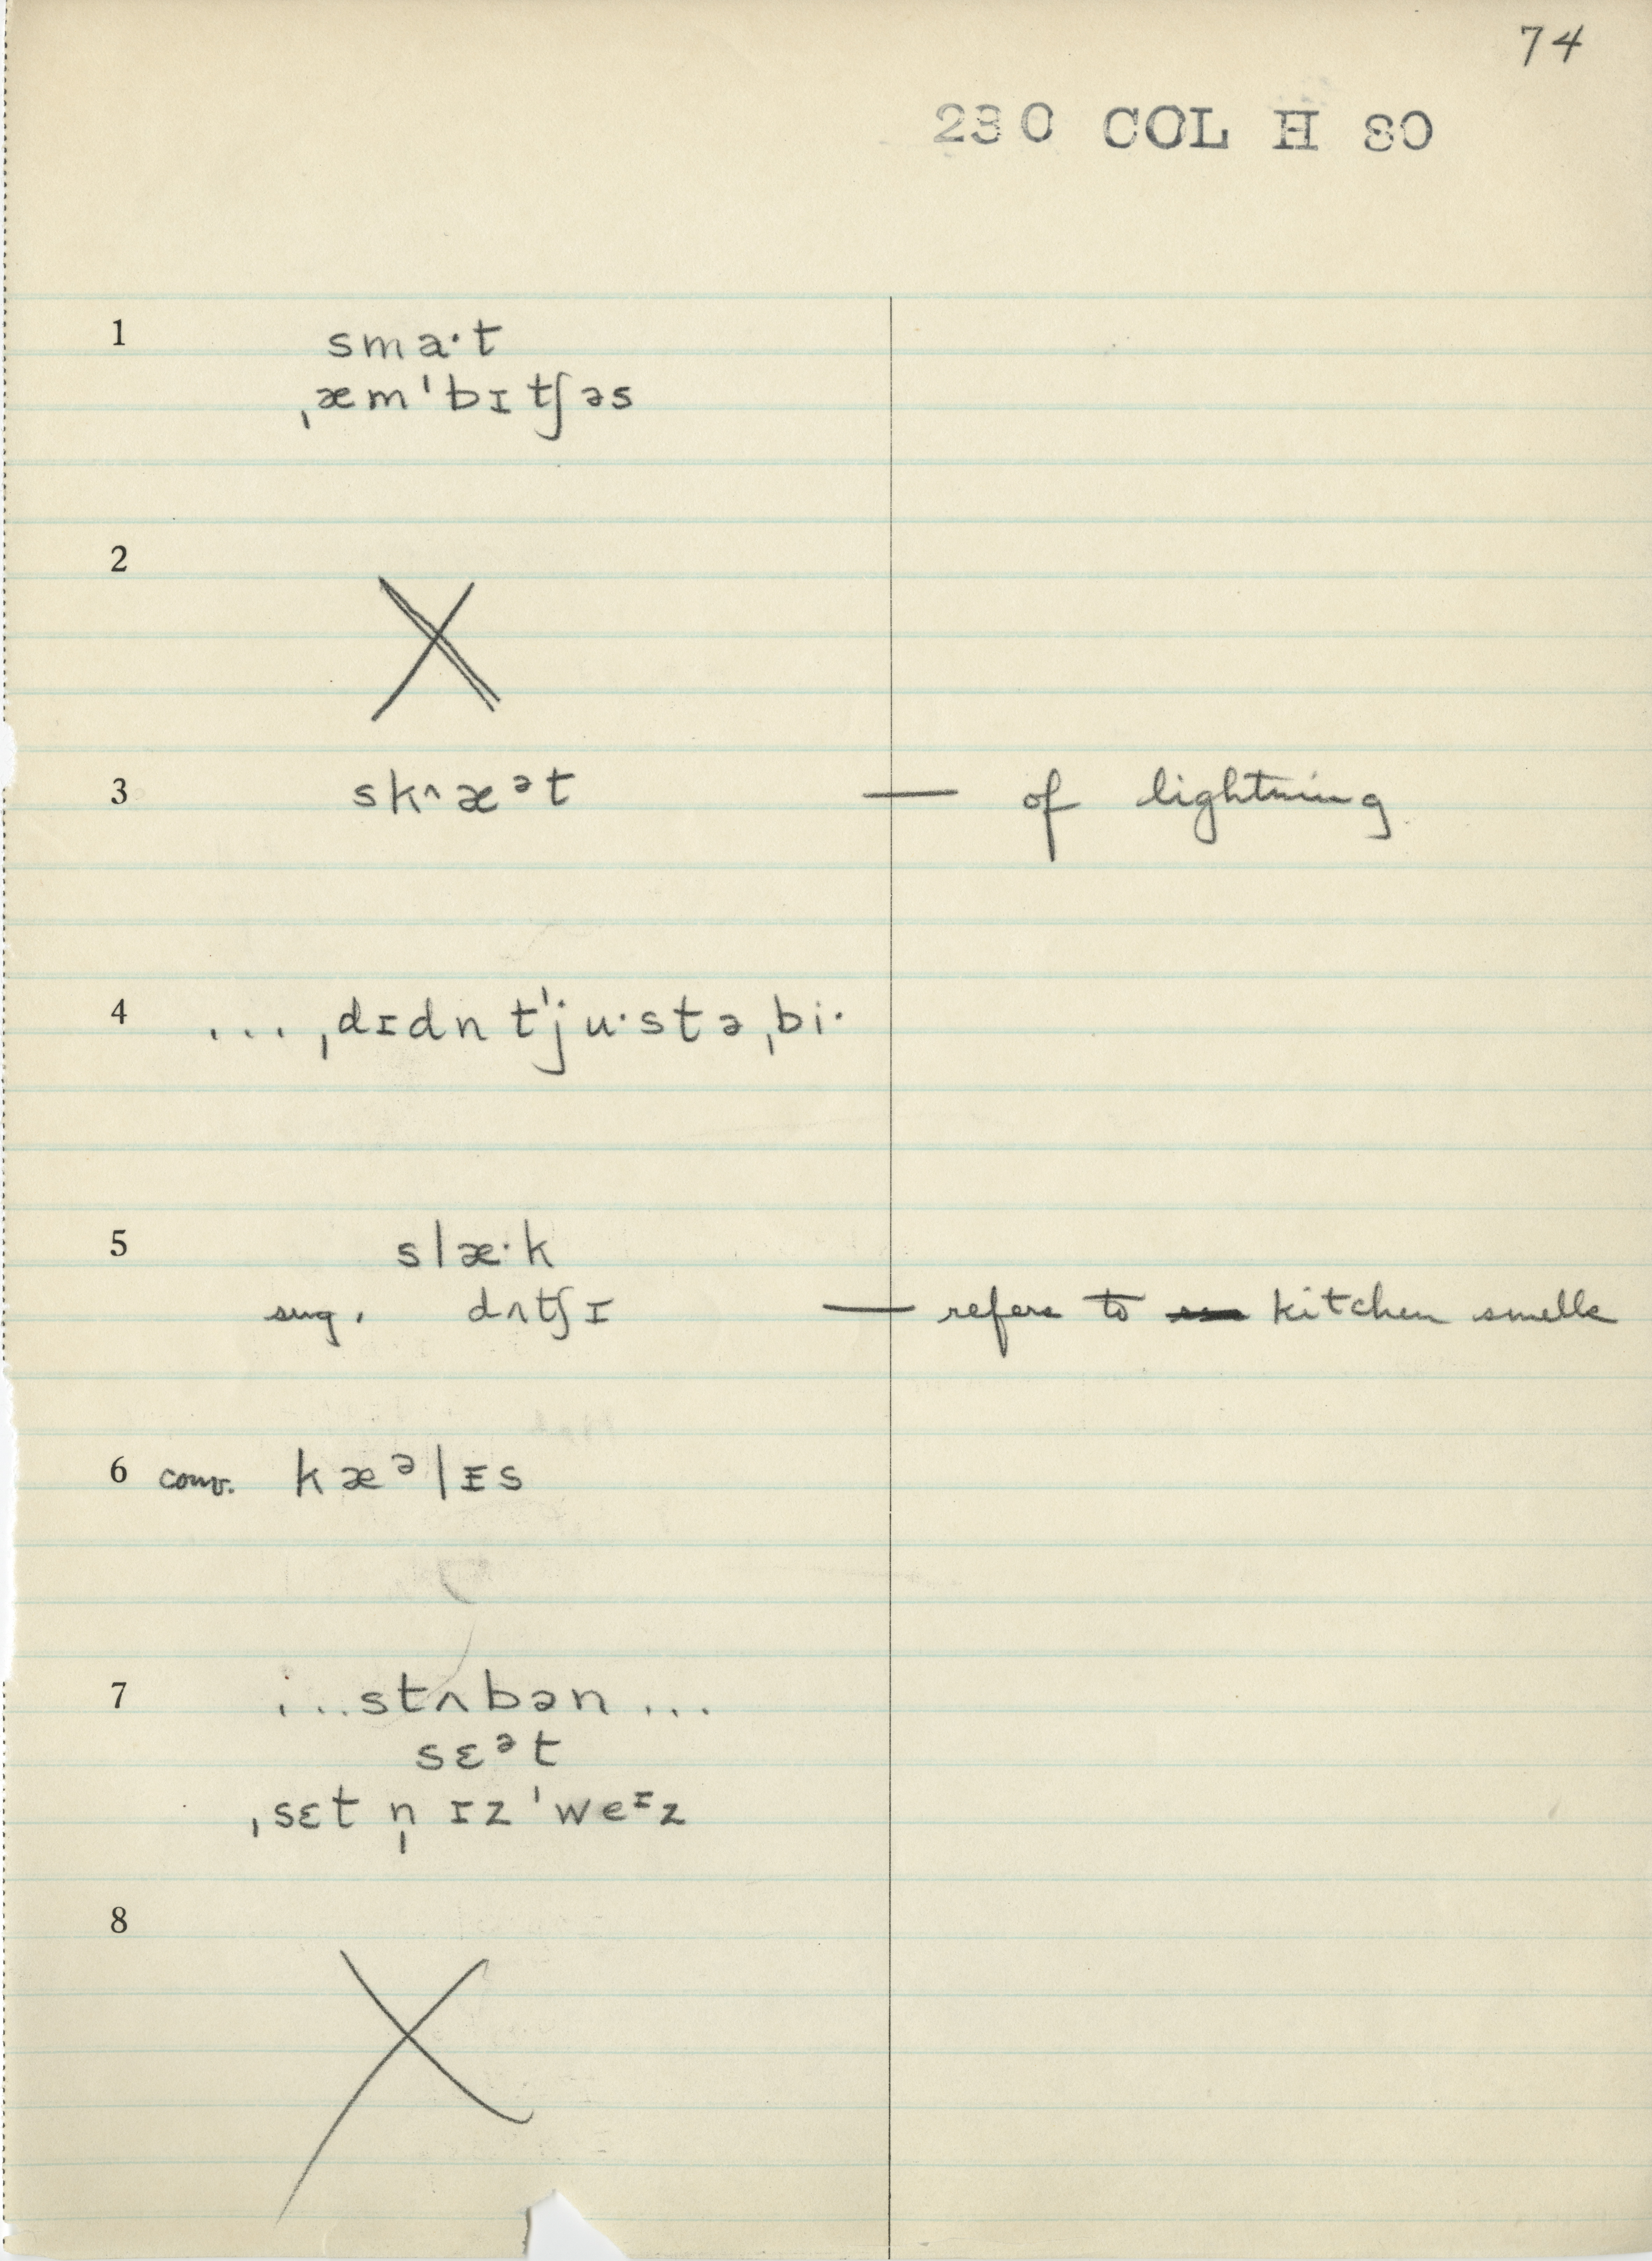 74
230 COL H 80
1 sma·t
ˌæm'bɪtʃəs
2
3 sk^æᵊt — of lightning
4 ... ˌdɪdnt'ju·stəˌbi·
5 slæ·k
sug. dʌtʃɪ — refers to kitchen smells
6 conv. kæᵊlɪs
7 ...stʌbən...
sɛᵊt
ˌsɛt n̩ ɪz 'weᶦz
8